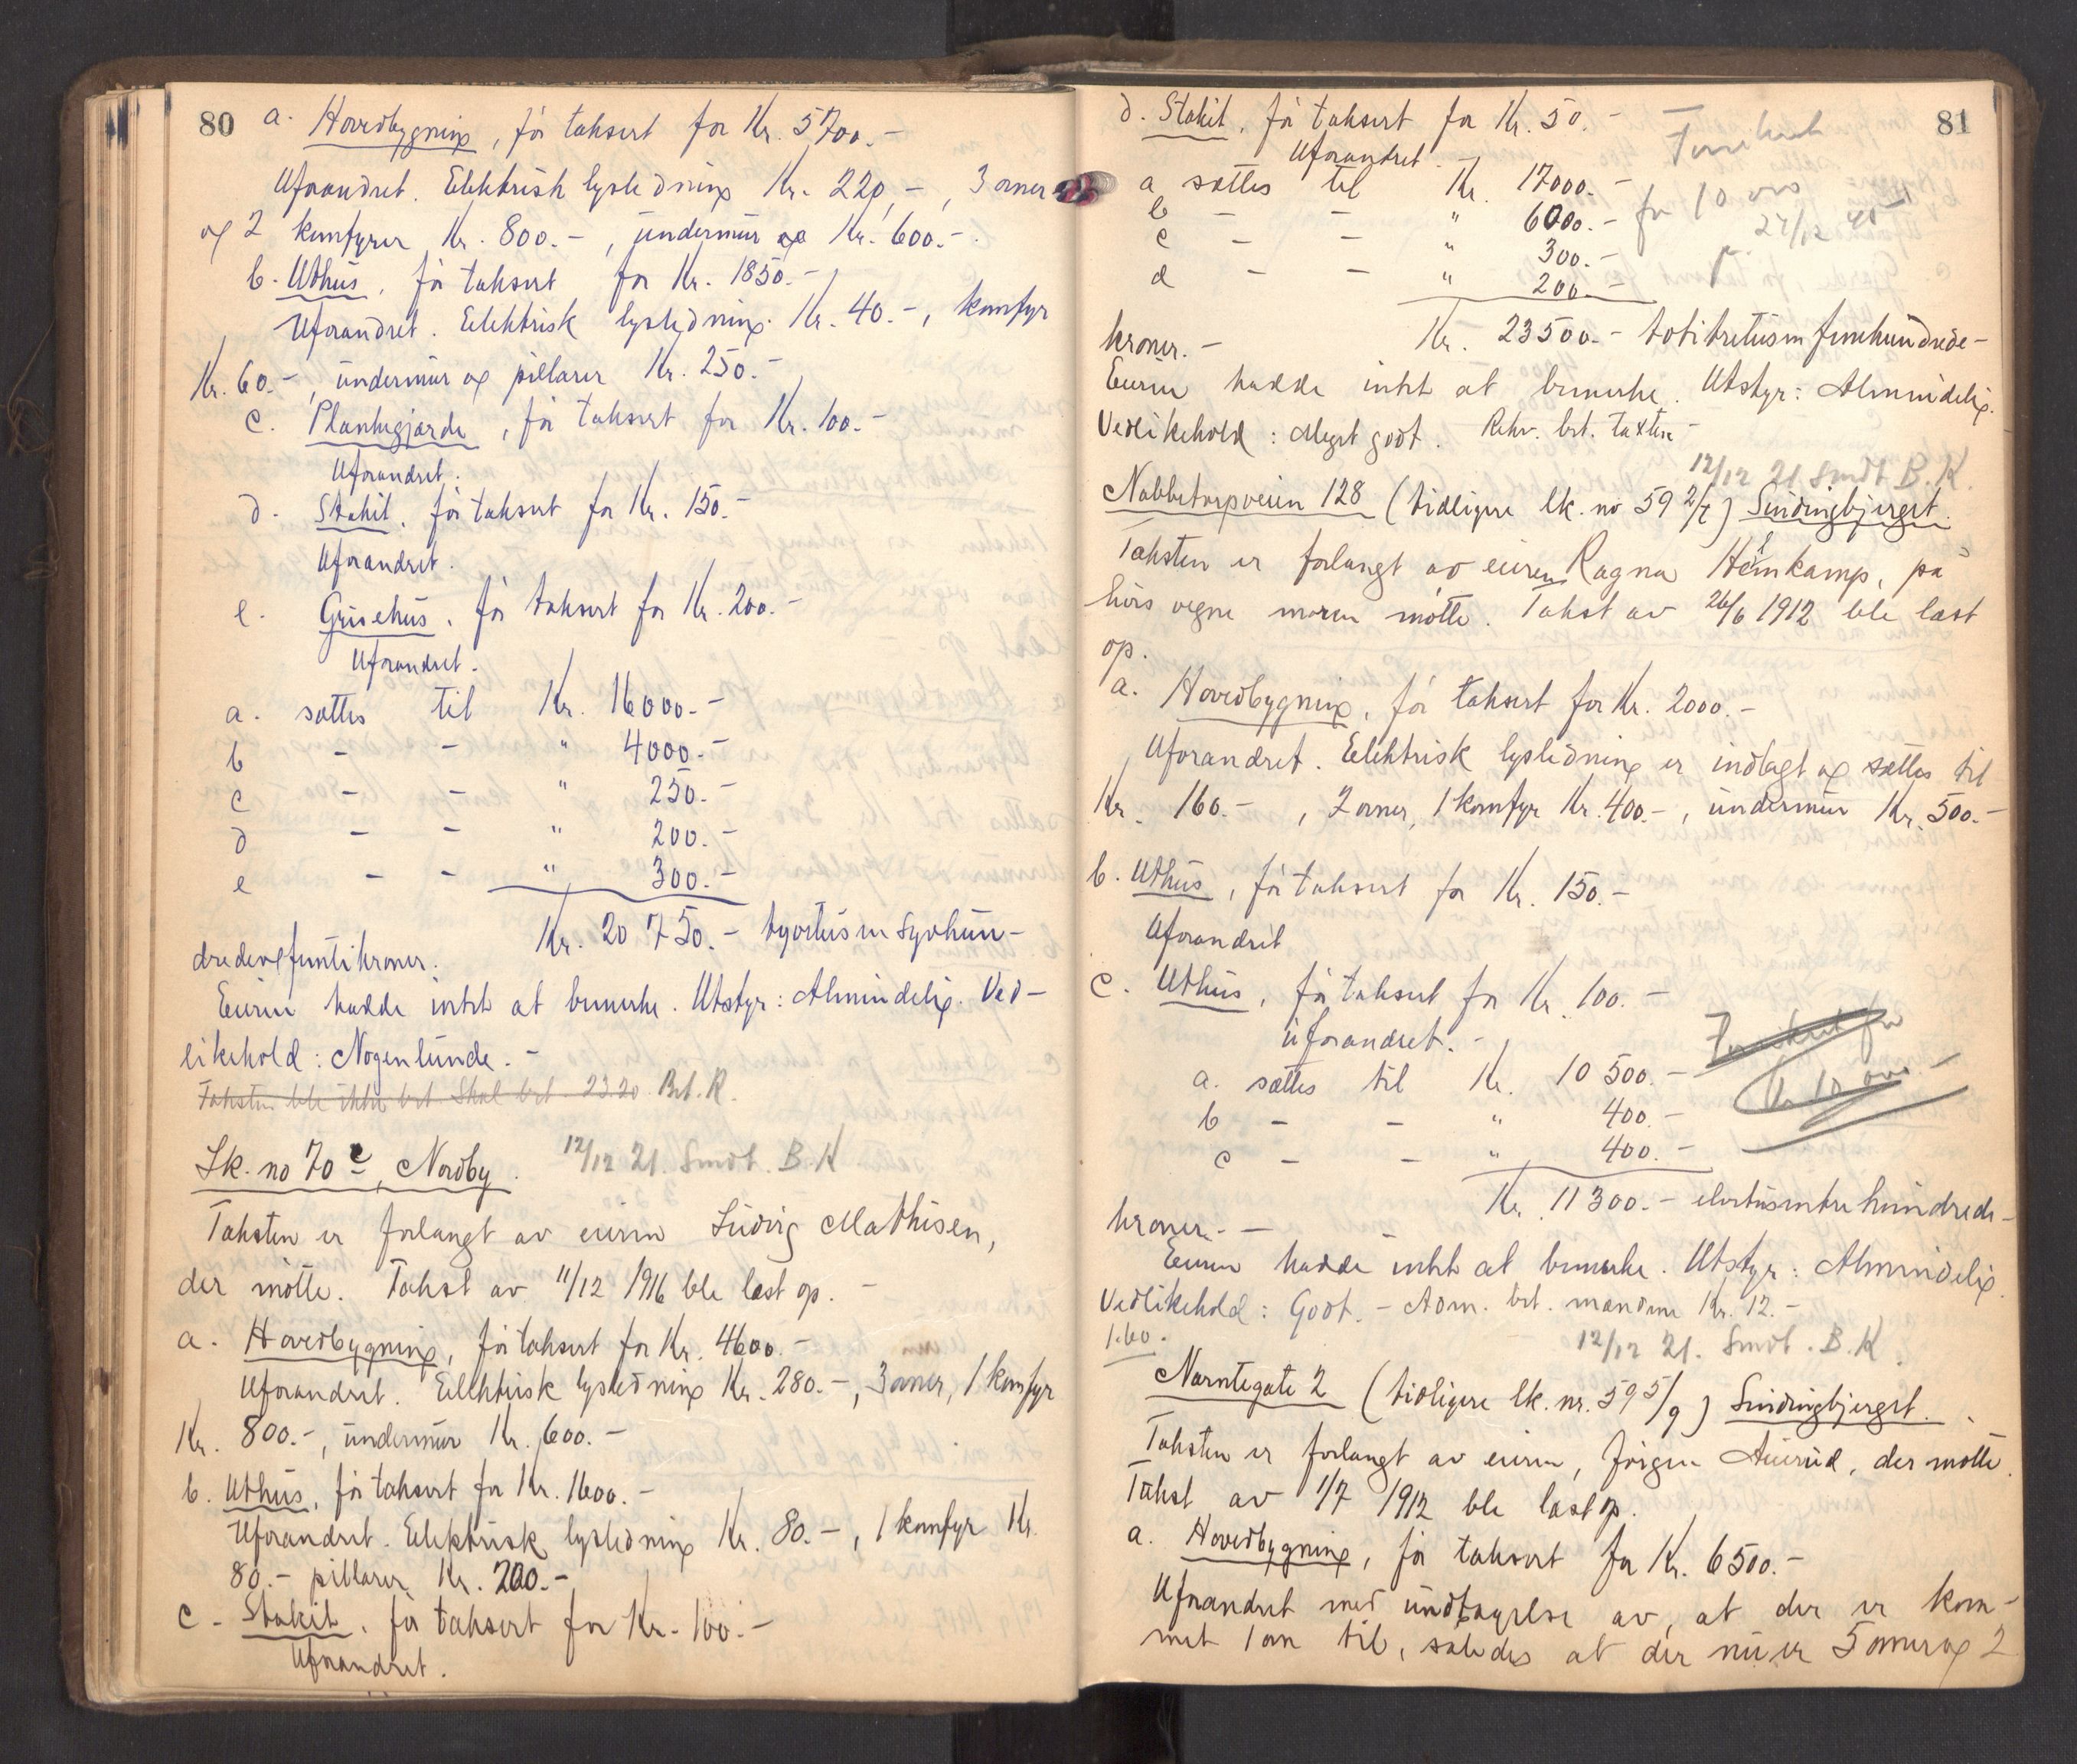 80
a. Hovedbygning, før taksert for Kr. 5700.-
Uforandret. Elektrisk lysledning Kr. 220,-, 3 ovner
og 2 komfyrer Kr. 800.-, undermur Kr. 600.-.
b. Uthus, før taksert for Kr. 1850.-
Uforandret. Elektrisk lysledning Kr. 40.-, komfyr
Kr. 60.-, undermur og pillarer Kr. 250.-
c. Plankegjærde, før taksert for Kr. 100.-
Uforandret.
d. Stakit, før taksert for Kr. 150.-
Uforandret.
e. Grisehus, før taksert for Kr. 200.-
Uforandret.
a. sættes til Kr. 16000.-
b - - " 4000.-
c - - " 250.-
d - - " 200.-
e - - " 300.-
Kr. 20 750.- tyvetusen syvhun-
dredeogfemtikroner.
Eieren hadde intet at bemerke. Utstyr: Almindelig. Ved-
likehold: Nogenlunde.-
Taksten ble ikke bet. Skal bet. 23.20. Bet. R.
Lk. no 70 c, Nordby. 12/12 21. Sendt. B.K.
Taksten er forlangt av eieren Ludvig Mathisen,
der møtte. Takst av 11/12 1916 ble læst op.-
a. Hovedbygning, før taksert for Kr. 4600.-
Uforandret. Elektrisk lysledning Kr. 280.-, 3 ovner, 1 komfyr
Kr. 800.-, undermur Kr. 600.-
b. Uthus, før taksert for Kr. 1600.-
Uforandret. Elektrisk lysledning Kr. 80.-, 1 komfyr Kr.
80.- pillarer Kr. 200.-
c - Stakit, før taksert for Kr. 100.-
Uforandret.
81
d. Stakit, før taksert for Kr. 50.-
Uforandret.
a sættes til Kr. 17000.-
b - - " 6000.- for 10 000
c - - " 300.-
d - - " 200.-
Kr. 23500.- totitretusen femhundrede-
kroner.-
Eieren hadde intet at bemerke. Utstyr: Almindelig.
Vedlikehold: Meget godt. Rekv. bet. taxten-
12/12 21 Sendt B.K.
Nabbetorpveien 128 (tidligere lk. no 59 2/7) Sindingbjerget.
Taksten er forlangt av eieren Ragna Hemkamp, på
hvis vegne moren møtte. Takst av 26/6 1912 ble læst
op.
a. Hovedbygning, før taksert for Kr. 2000.-
Uforandret. Elektrisk lysledning er indlagt og sættes til
Kr. 160.-, 2 ovner, 1 komfyr Kr. 400.-, undermur Kr. 500.-
b. Uthus, før taksert for Kr. 150.-
Uforandret
c. Uthus, før taksert for Kr. 100.-
uforandret.-
a. sættes til Kr. 10 500.-
b - - " 400.-
c - - " 400.-
Kr. 11 300.- elvetusentrehundrede-
kroner.-
Eieren hadde intet at bemerke. Utstyr: Almindelig.
Vedlikehold: Godt.- Adm. bet. mændene Kr. 12.-
1.60.
12/12 21. Sendt. B.K.
Narntegate 2 (tidligere lk. nr. 59 5/9) Sindingbjerget.
Taksten er forlangt av eieren, Jørgen Auerud, der møtte.
Takst av 1/7 1912 ble læst op.
a. Hovedbygning, før taksert for Kr. 6500.-
Uforandret med undtagelse av, at der er kom-
met 1 ovn til, således at der nu er 5 ovner og 2